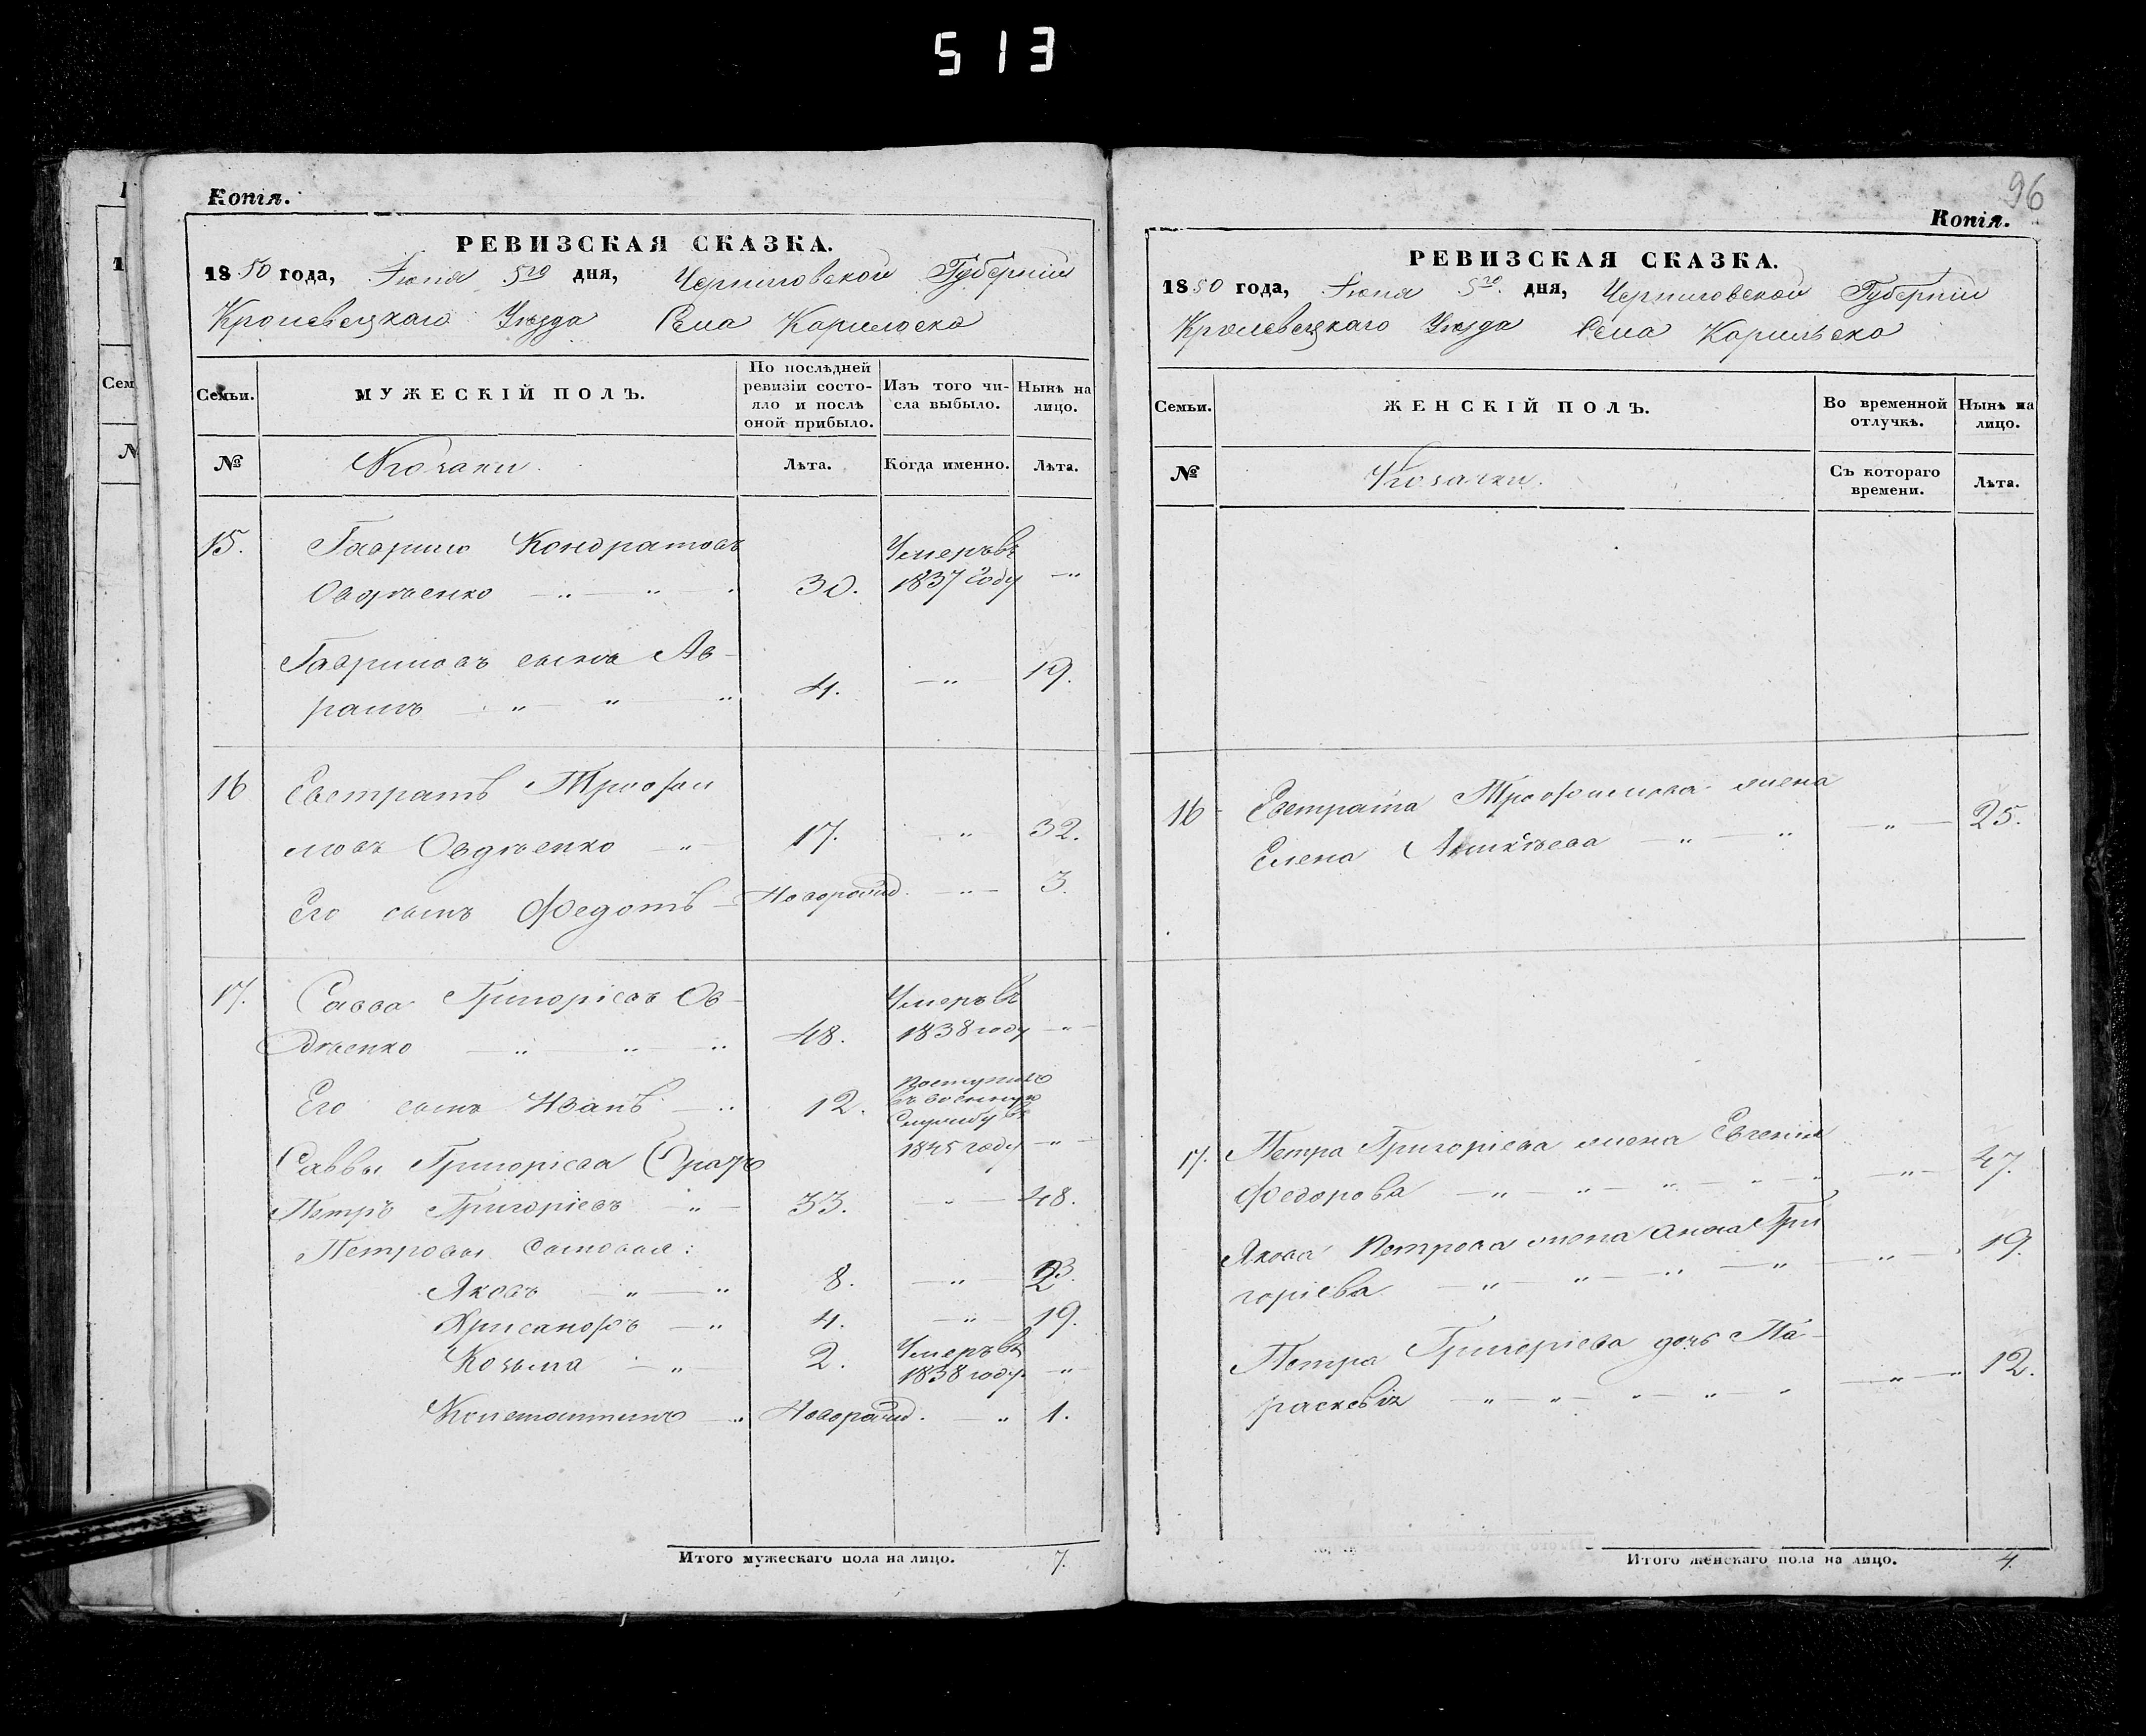 513
Копія.
РЕВИЗСКАЯ СКАЗКА.
1850 года, Іюня 5го дня, Черниговской Губерніи
Кролевецкаго Уѣзда Села Карильска
Семьи.
МУЖЕСКІЙ ПОЛЪ.
По послѣдней ревизіи состояло и послѣ оной прибыло.
Изъ того числа выбыло.
Нынѣ на лицо.
№
Козаки.
Лѣта.
Когда именно.
Лѣта.
15. Гаврило Кондратовъ Умеръ въ
Овдѣенко — „ — „ 30. 1837 году — „
Гавриловъ сынъ Ав-
рамъ — „ — „ — „ 4. — „ — 19.
16 Евстратъ Трофи
мовъ Овдѣенко — „ 17. „ 32.
Его сынъ Федотъ — Новорожд. — „ — 3.
17. Савва Григоріевъ Ов- Умеръ въ
дѣенко — „ — „ — „ 48. 1838 году — „ —
Его сынъ Иванъ — „ 12. Поступилъ
въ военную
Службу въ
1845 году — „ —
Саввы Григоріева братъ
Петръ Григоріевъ „ — 33. „ — 48.
Петровы сыновья:
Яковъ — „ — „ 8. — „ — 23.
Хрисанфъ — „ 4. — „ — 19.
Козьма — „ 2. Умеръ въ
1838 году. — „
Константинъ — „ Новорожд. „ 1.
Итого мужескаго пола на лицо. 7.
96
Копія.
РЕВИЗСКАЯ СКАЗКА.
1850 года, Іюня 5го дня, Черниговской Губерніи
Кролевецкаго Уѣзда Села Карильска
Семьи.
ЖЕНСКІЙ ПОЛЪ.
Во временной отлучкѣ.
Нынѣ на лицо.
№
Козачки.
Съ котораго времени.
Лѣта.
16 Евстрата Трофимова жена
Елена — „ — „ — „ — 25.
17. Петра Григоріева жена Евгенія
Федорова — „ — „ — „ — „ — „ — 47.
Якова Петрова жена Анна Гри
горіева — „ — „ — „ — „ — „ — 19.
Петра Григоріева дочь Па-
раскевія — „ — „ — „ — „ — „ — „ 12.
Итого женскаго пола на лицо. 4.